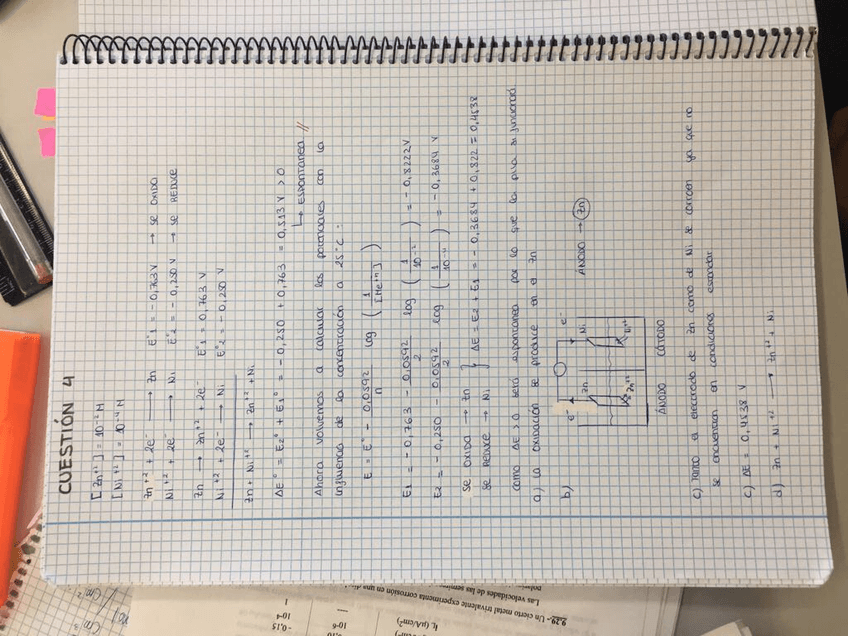 CUESTIÓN 4
[Zn⁺²] = 10⁻² M
[Ni⁺²] = 10⁻⁴ M
Zn⁺² + 2e⁻ → Zn E°1 = -0,763 V → SE OXIDA
Ni⁺² + 2e⁻ → Ni E°2 = -0,250 V → SE REDUCE
Zn → Zn⁺² + 2e⁻ E°1 = 0,763 V
Ni⁺² + 2e⁻ → Ni E°2 = -0,250 V
Zn + Ni⁺² → Zn⁺² + Ni
ΔE° = E2° + E1° = -0,250 + 0,763 = 0,513 V > 0
↳ ESPONTANEA //
Ahora volvemos a calcular los potenciales con la
influencia de la concentración a 25°C.
E = E° - 0,0592 / n log ( 1 / [Me⁺ⁿ] )
E1 = -0,763 - 0,0592 / 2 log ( 1 / 10⁻² ) = -0,8222 V
E2 = -0,250 - 0,0592 / 2 log ( 1 / 10⁻⁴ ) = -0,3684 V
SE OXIDA → Zn
SE REDUCE → Ni } ΔE = E2 + E1 = -0,3684 + 0,822 = 0,4538
como ΔE > 0 será espontanea por lo que la pila si funcionará
a) La oxidación se produce en el Zn
b)
e⁻ e⁻
Zn Ni
Zn⁺² Ni⁺²
ÁNODO CÁTODO
ÁNODO → Zn
c) Tanto el electrodo de Zn como de Ni se corroen ya que no
se encuentran en condiciones estandar
c) ΔE = 0,4538 V
d) Zn + Ni⁺² → Zn⁺² + Ni
9.29.- Un cierto metal trivalente experimenta corrosión en una
Las velocidades de las